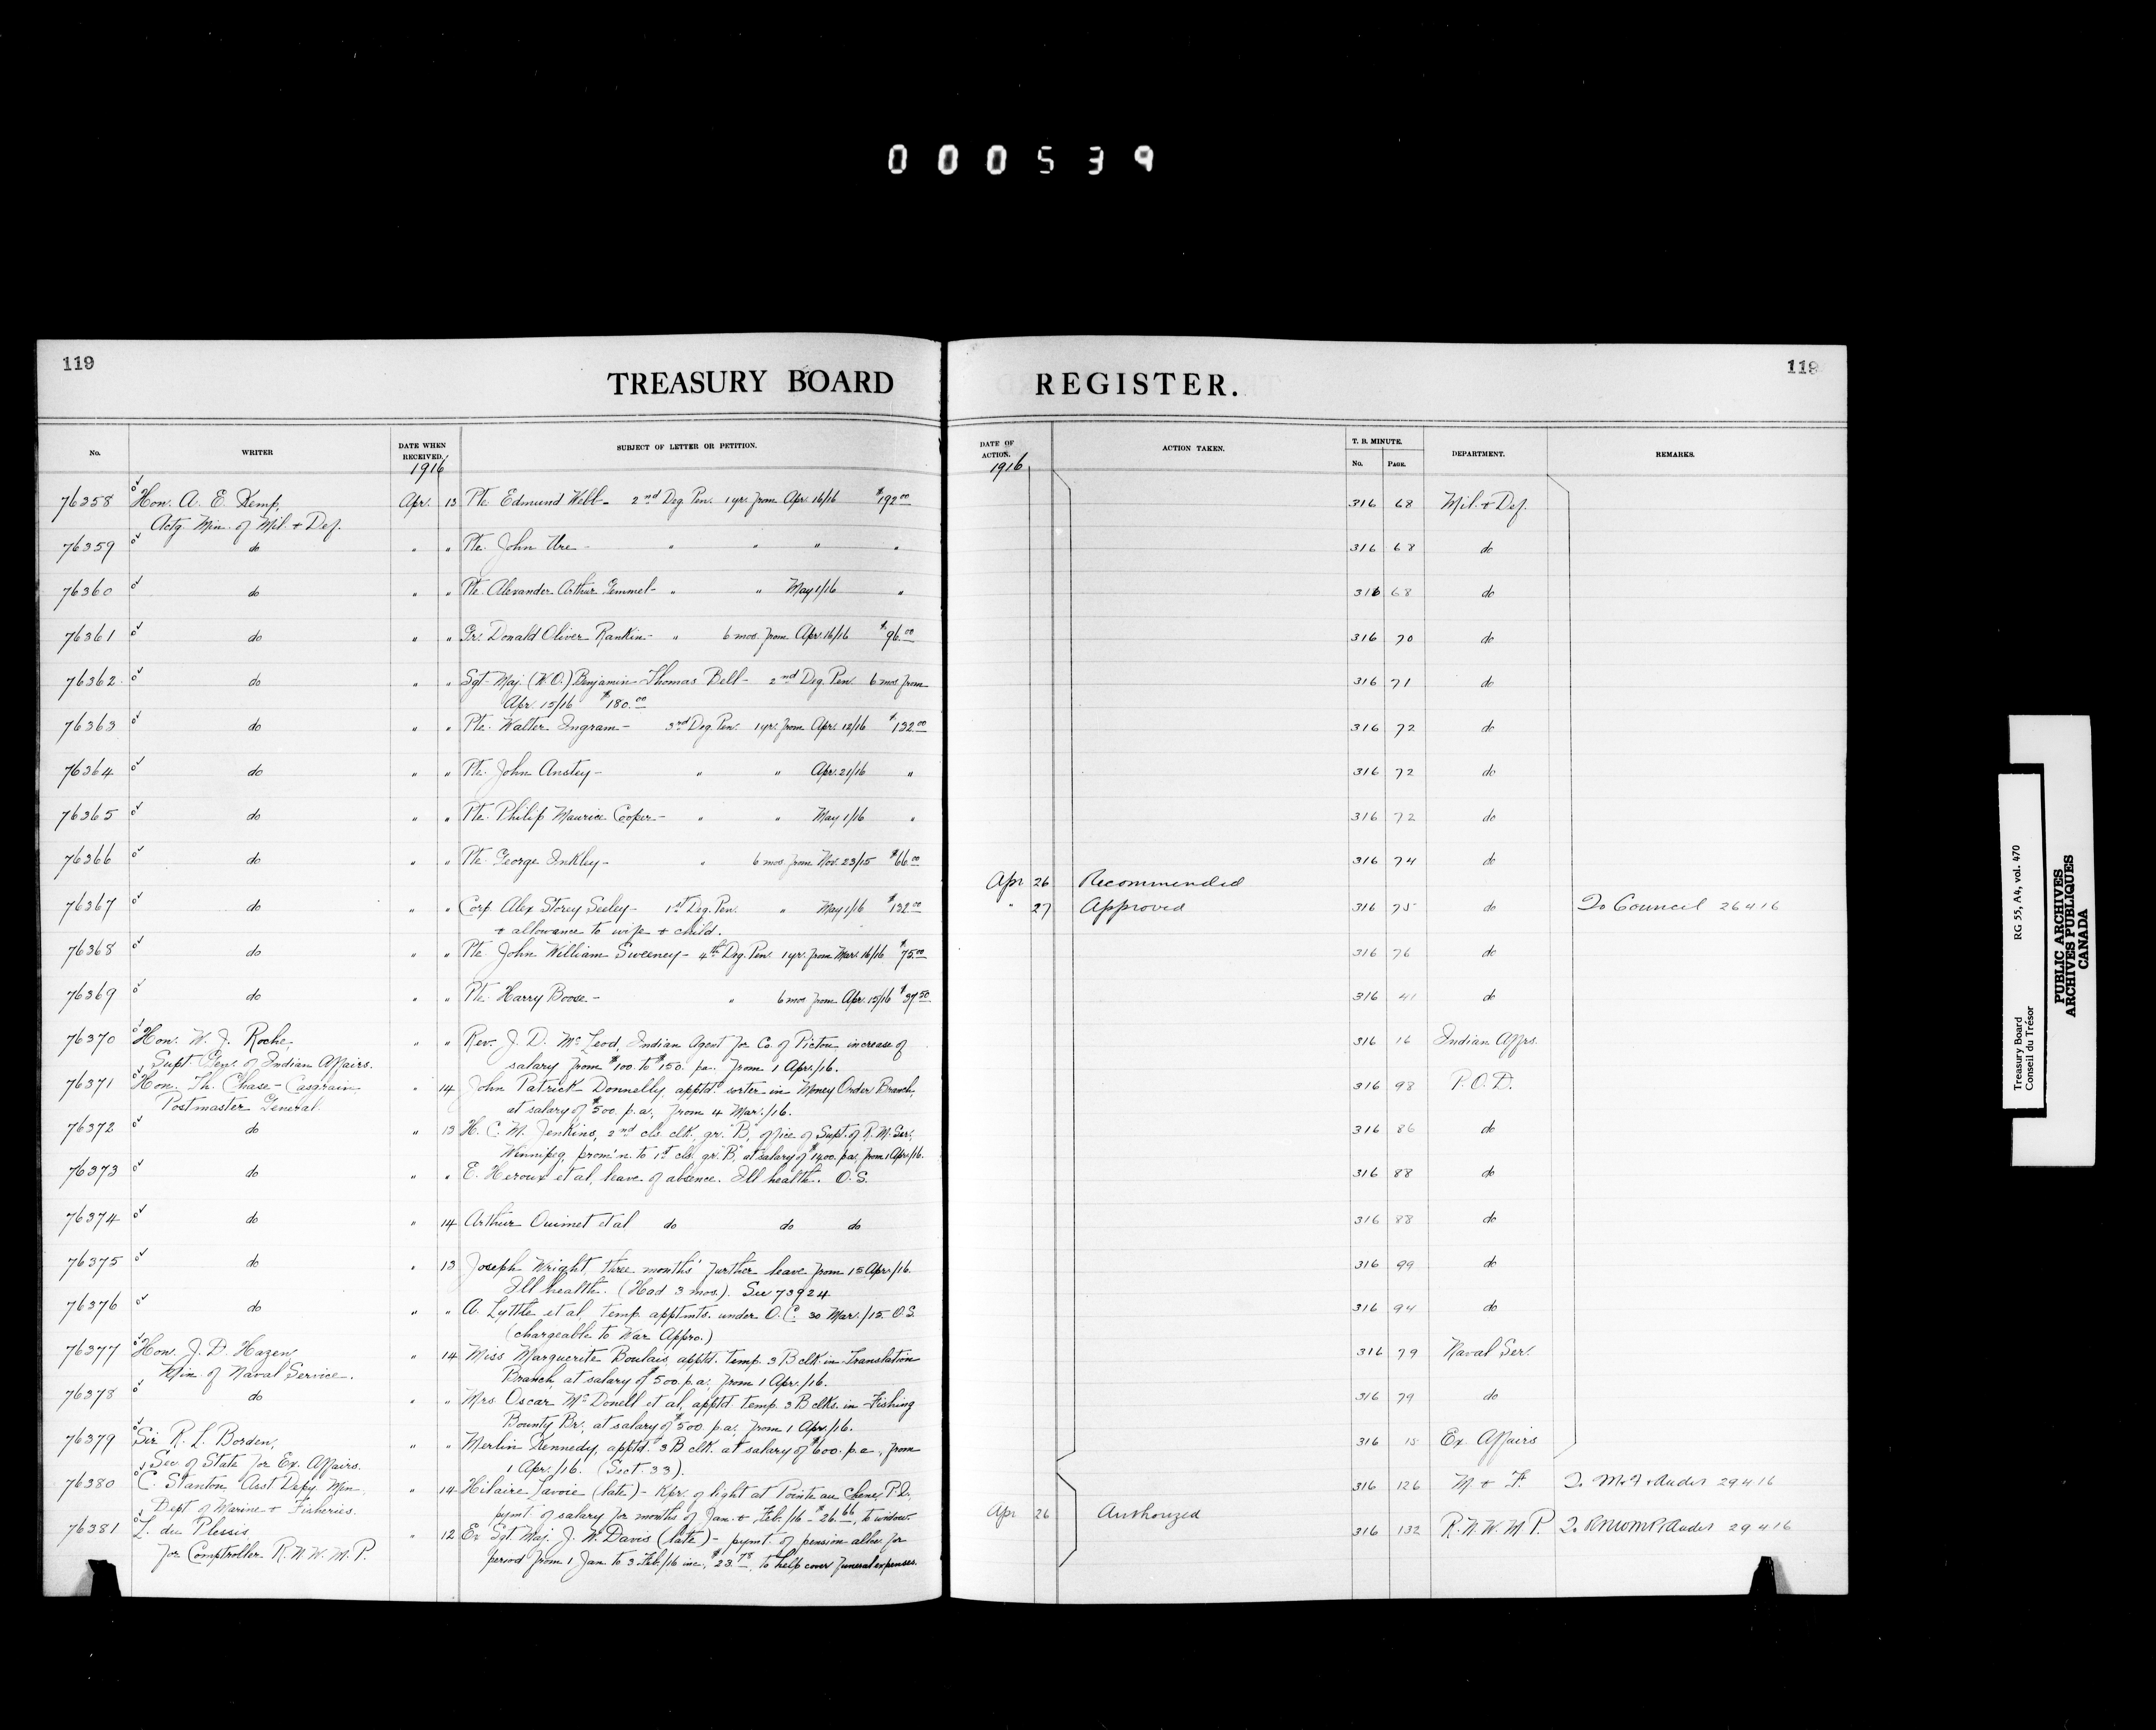 000539
119
TREASURY BOARD REGISTER.
119
No. WRITER DATE WHEN RECEIVED. SUBJECT OF LETTER OR PETITION. DATE OF ACTION. ACTION TAKEN. T. B. MINUTE. No. PAGE. DEPARTMENT. REMARKS.
1916 1916
76358 Hon. A. E. Kemp, Apr. 13 Pte. Edmund Webb - 2nd Deg. Pen. 1 yr. from Apr. 16/16 $192.00 316 68 Mil. & Def.
Actg. Min. of Mil. & Def.
76359 do " " Pte. John Ure - " " " " 316 68 do
76360 do " " Pte. Alexander Arthur Gemmel - " " May 1/16 " 316 68 do
76361 do " " Gr. Donald Oliver Rankin - " 6 mos. from Apr. 16/16 $96.00 316 70 do
76362 do " " Sgt-Maj. (W.O.) Benjamin Thomas Bell - 2nd Deg. Pen. 6 mos. from 316 71 do
Apr. 15/16 $180.00
76363 do " " Pte. Walter Ingram - 3rd Deg. Pen. 1 yr. from Apr. 12/16 $132.00 316 72 do
76364 do " " Pte. John Anstey - " " Apr. 21/16 " 316 72 do
76365 do " " Pte. Philip Maurice Cooper - " " May 1/16 " 316 72 do
76366 do " " Pte. George Inkley - " 6 mos. from Nov. 23/15 $66.00 316 74 do
Apr 26 Recommended
76367 do " " Corp. Alex Storey Seeley - 1st Deg. Pen. " May 1/16 $132.00 " 27 Approved 316 75 do To Council 26 4 16
& allowance to wife & child.
76368 do " " Pte. John William Sweeney - 4th Deg. Pen. 1 yr. from Mar. 16/16 $75.00 316 76 do
76369 do " " Pte. Harry Boose - " 6 mos. from Apr. 15/16 $37.50 316 41 do
76370 Hon. W. J. Roche, " " Rev. J. D. McLeod, Indian Agent for Co. of Pictou, increase of 316 16 Indian Affrs.
Supt. Gen. of Indian Affairs. salary from $100. to $150. p.a. from 1 Apr./16.
76371 Hon. Th. Chase-Casgrain, " 14 John Patrick Donnelly, apptd. writer in Money Order Branch, 316 98 P.O.D.
Postmaster General. at salary of $500. p.a., from 4 Mar./16.
76372 do " 13 H. C. M. Jenkins, 2nd cls. clk., gr. "B", office of Supt. of R. M. Ser., 316 86 do
Winnipeg, prom'n. to 1st cls. gr. "B", at salary of $1400. p.a., from 1 Apr./16.
76373 do " " E. Heroux et al, leave of absence. Ill health. O.S. 316 88 do
76374 do " 14 Arthur Ouimet et al do do do 316 88 do
76375 do " 13 Joseph Wright three months' further leave from 15 Apr./16. 316 99 do
Ill health. (Had 3 mos.). See 73924
76376 do " " A. Lyttle et al, temp. apptmts. under O.C. 30 Mar./15. O.S. 316 94 do
(chargeable to War Appro.)
76377 Hon. J. D. Hazen, " 14 Miss Marguerite Boulais, apptd. temp. 3 B clk. in Translation 316 79 Naval Ser.
Min. of Naval Service. Branch, at salary of $500. p.a., from 1 Apr./16.
76378 do " " Mrs. Oscar McDonell et al, apptd. temp. 3 B clks. in Fishing 316 79 do
Bounty Br., at salary of $500 p.a., from 1 Apr./16.
76379 Sir R. L. Borden, " " Merlin Kennedy, apptd. 3 B clk. at salary of $600. p.a., from 316 15 Ex. Affairs
Sec. of State for Ex. Affairs. 1 Apr./16. (Sect. 33).
76380 C. Stanton, Asst Depy. Min., " 14 Hilaire Lavoie (late) - Kpr. of light at Pointe au Chene, P.Q. 316 126 M & F. To M & F & Auder 29 4 16
Dept of Marine & Fisheries. pymt. of salary for months of Jan. & Feb./16 - $26.66, to widow.
Apr 26 Authorized
76381 L. du Plessis, " 12 Ex Sgt. Maj. J. W. Davis (late) - pymt. of pension allce. for 316 132 R.N.W.M.P. To RNWMP & Auder 29 4 16
for Comptroller R.N.W.M.P. period from 1 Jan to 3 Feb./16 inc., $23.78, to help cover funeral expenses.
Treasury Board RG 55, A4, vol. 470
Conseil du Trésor
PUBLIC ARCHIVES
ARCHIVES PUBLIQUES
CANADA